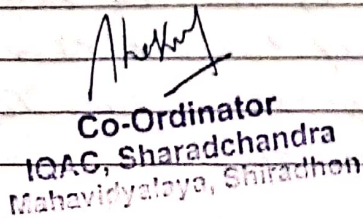 Co-Ordinator
IQAC, Sharadchandra
Mahavidyalaya, Shiradhon